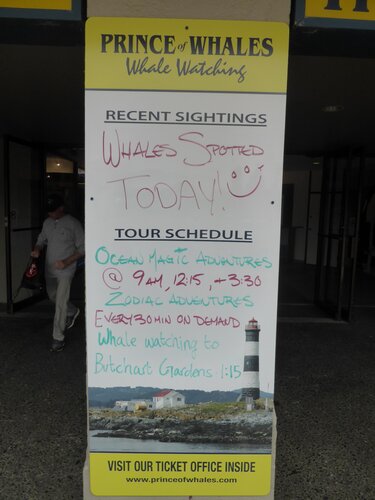 PRINCE of WHALES
Whale Watching
RECENT SIGHTINGS
WHALES SPOTTED
TODAY!
TOUR SCHEDULE
OCEAN MAGIC ADVENTURES
@ 9AM, 12:15, +3:30
ZODIAC ADVENTURES
EVERY 30 MIN ON DEMAND
Whale watching to
Butchart Gardens 1:15
VISIT OUR TICKET OFFICE INSIDE
www.princeofwhales.com